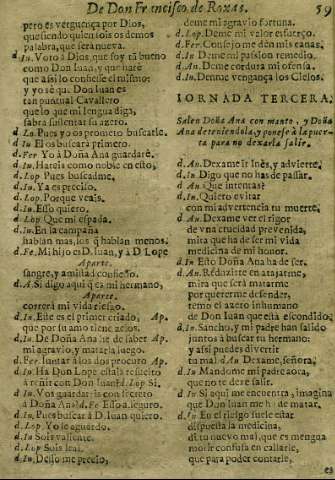 De Don Francisco de Roxas. 59
pero es verguença por Dios,
que siendo quien sois os demos
palabra, que serà nueva.
d. In. Voto à Dios, que soy tã bueno
como Don Iuan, y que harè
que assi lo confiesse el mismo:
y yo sè que Don Iuan es
tan puntual Cavallero
que lo que mi lengua diga,
sabrà sustentar su azero.
d. Lo. Pues yo os prometo buscarle.
d. In El os buscarà primero.
d. Fer Yo à Doña Ana guardarè.
d. In. Hareis como noble en esto,
d. Lop Pues buscadme,
d. In. Ya es preciso.
d. Lop. Porque veais.
d. In. Esso quiero.
d. Lop Que mi espada.
d. In. En la campaña
hablan mas, los q̃ hablan menos.
d. Fe. Mi hijo es D. Iuan, y à D. Lope
Aparte.
sangre, y amistad confiesso.
d. A. Si digo aqui q̃ es mi hermano,
Aparte.
correrà mi vida riesgo.
d. In. Este es el primer criado, Ap.
que por su amo tiene zelos.
d. In. De Doña Ana he de saber Ap.
mi agravio, y matarla luego.
d. Fer. Iuntar à los dos procuro Ap.
d. In. Ha Don Lope estais resuelto
à reñir con Don Iuan? d. Lop Si.
d. In. Vos guardareis con secreto
à Doña Ana? d. Fe Esso asseguro.
d. In. Pues buscar à D. Iuan quiero.
d. Lop Yo le aguardo.
d. In Sois valiente.
d. Lop Sois leal.
d. In. Desso me precio,
deme mi agravio fortuna.
d. Lop. Deme mi valor esfuerço.
d. Fer. Consejo me dèn mis canas.
d. In Deme mi passion remedio.
d. An. Deme cordura mi ofensa.
d. In. Denme vengança los Cielos.
IORNADA TERCERA.
Salen Doña Ana con manto, y Doña
Ana deteniendola, y ponese à la puer-
ta para no dexarla salir.
d. An. Dexame ir Inès, y advierte,
d. In Digo que no has de passar.
d. An Que intentas?
d. In. Quiero evitar
con mi advertencia tu muerte.
d. An. Dexame ver el rigor
de vna crueldad prevenida,
mira que ha de ser mi vida
medicina de mi honor.
d. In Esto Doña Ana ha de ser.
d. An. Rèduzirte en atajarme,
mira que serà matarme
por quererme defender,
temo el azero inhumano
de Don Iuan que està escondido,
d. In. Sancho, y mi padre han salido
juntos à buscar tu hermano:
y assi puedes divertir
tu mal. d. An Dexame, señora,
d. In Mandome mi padre aora,
que no te dexe salir.
d. In Si aqui me encuentra, imagina
que D. Iuan me ha de matar,
d. In En el riesgo suele estar
dispuesta la medicina,
d. An tu nuevo mal, que es mengua
morir confusa en callarle,
que para poder contarle,
es